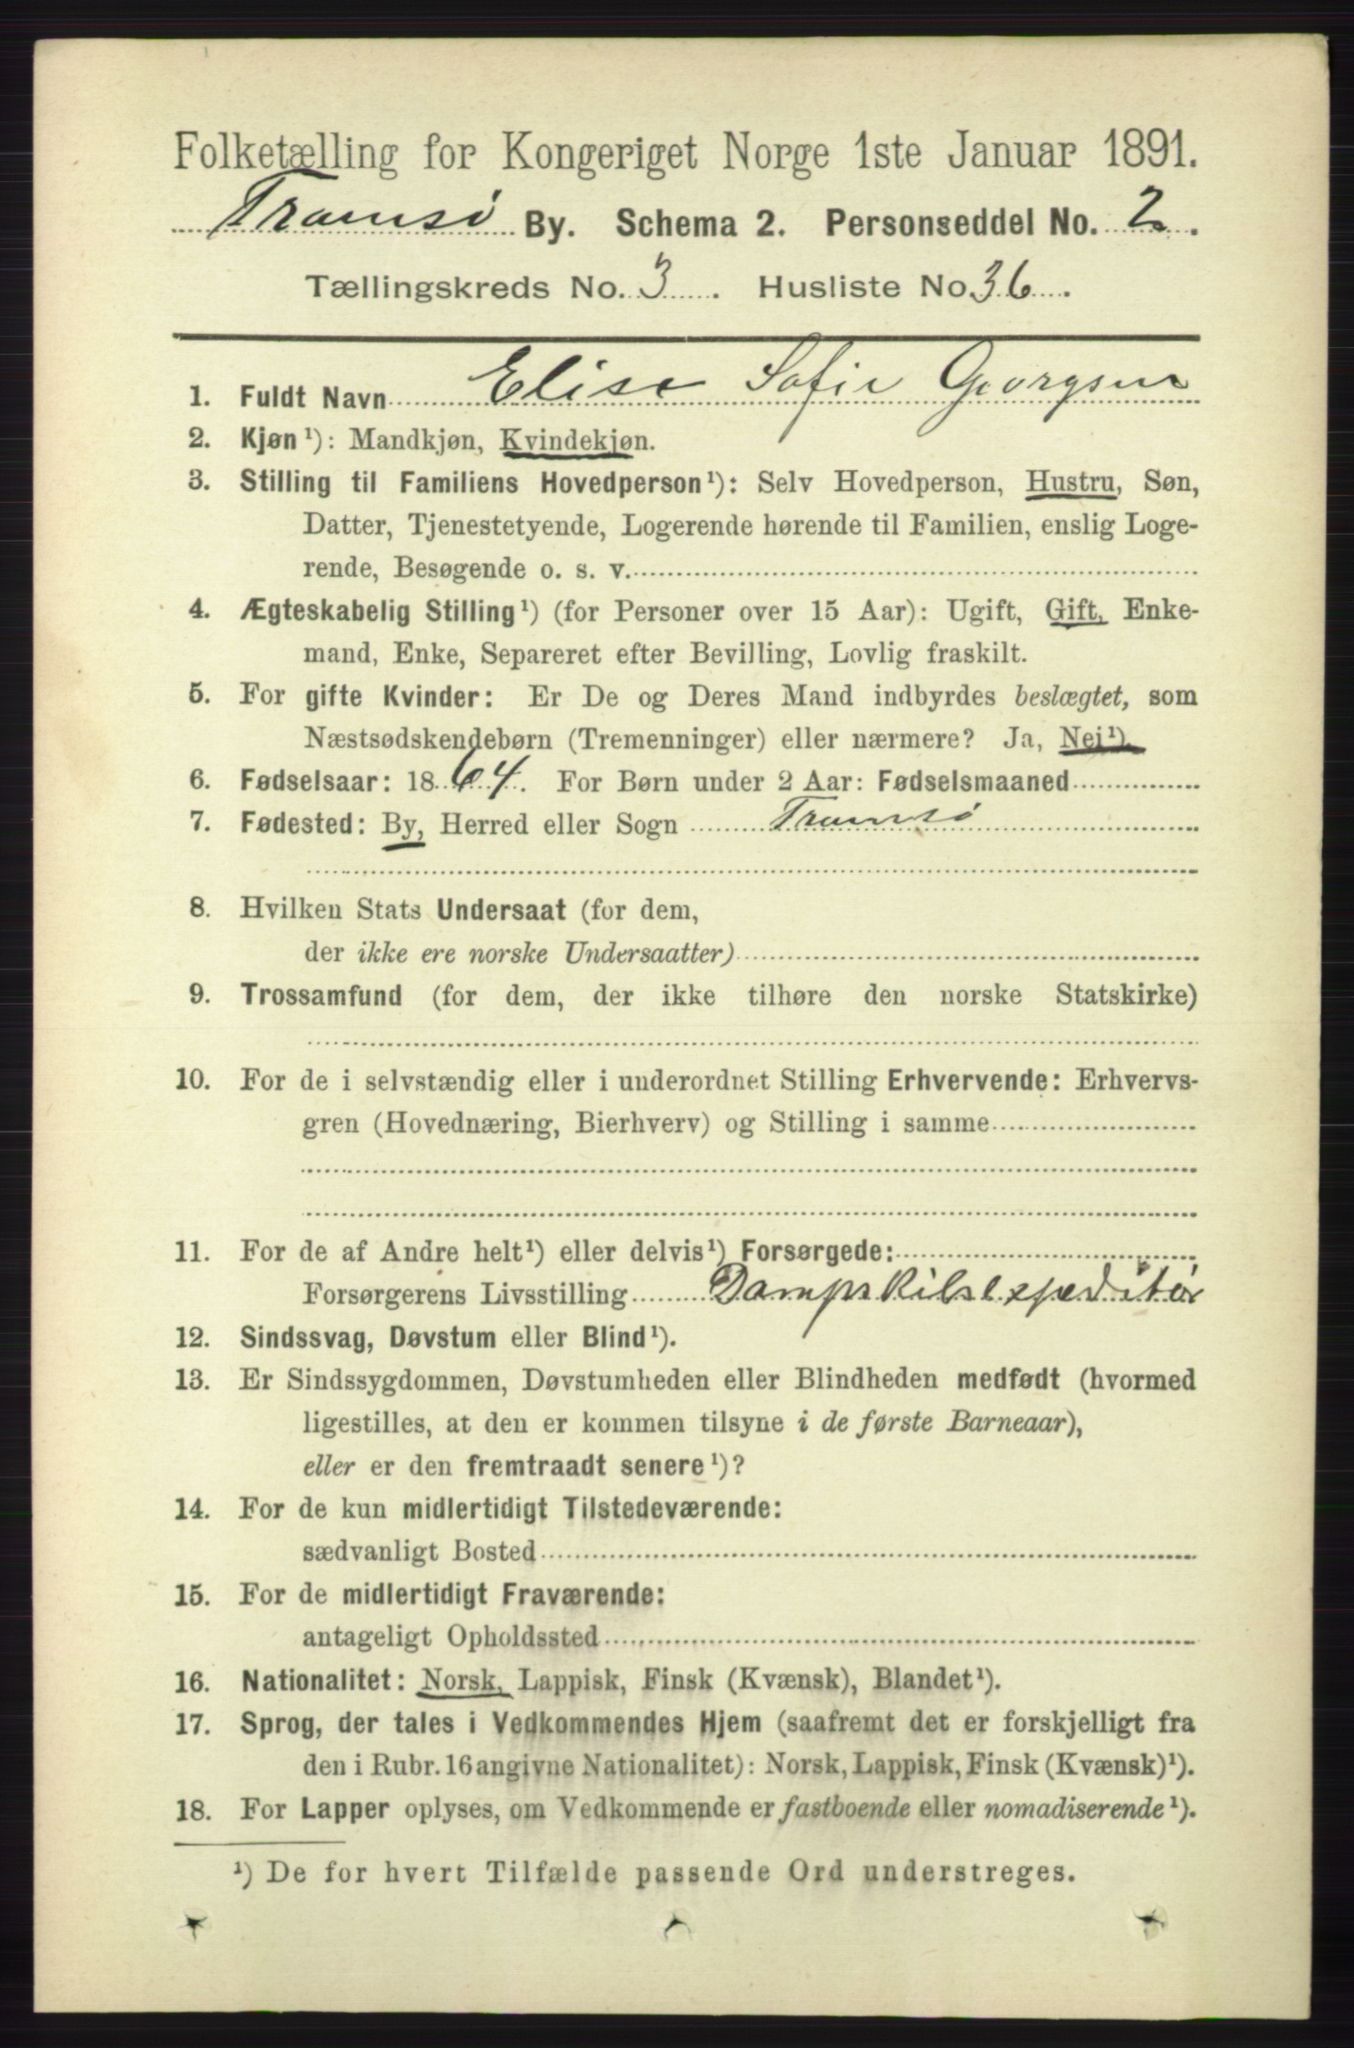 Folketælling for Kongeriget Norge 1ste Januar 1891.
Tromsø By. Schema 2. Personseddel No. 2.
Tællingskreds No. 3. Husliste No. 36.
1. Fuldt Navn Elise Sofie Georgsen
2. Kjøn ¹): Mandkjøn, Kvindekjøn.
3. Stilling til Familiens Hovedperson ¹): Selv Hovedperson, Hustru, Søn,
Datter, Tjenestetyende, Logerende hørende til Familien, enslig Loge-
rende, Besøgende o. s. v.
4. Ægteskabelig Stilling ¹) (for Personer over 15 Aar): Ugift, Gift, Enke-
mand, Enke, Separeret efter Bevilling, Lovlig fraskilt.
5. For gifte Kvinder: Er De og Deres Mand indbyrdes beslægtet, som
Næstsødskendebørn (Tremenninger) eller nærmere? Ja, Nei ¹).
6. Fødselsaar: 1864. For Børn under 2 Aar: Fødselsmaaned
7. Fødested: By, Herred eller Sogn Tromsø
8. Hvilken Stats Undersaat (for dem,
der ikke ere norske Undersaatter)
9. Trossamfund (for dem, der ikke tilhøre den norske Statskirke)
10. For de i selvstændig eller i underordnet Stilling Erhvervende: Erhvervs-
gren (Hovednæring, Bierhverv) og Stilling i samme
11. For de af Andre helt ¹) eller delvis ¹) Forsørgede:
Forsørgerens Livsstilling Dampskibsexpeditør
12. Sindssvag, Døvstum eller Blind ¹).
13. Er Sindssygdommen, Døvstumheden eller Blindheden medfødt (hvormed
ligestilles, at den er kommen tilsyne i de første Barneaar),
eller er den fremtraadt senere ¹)?
14. For de kun midlertidigt Tilstedeværende:
sædvanligt Bosted
15. For de midlertidigt Fraværende:
antageligt Opholdssted
16. Nationalitet: Norsk, Lappisk, Finsk (Kvænsk), Blandet ¹).
17. Sprog, der tales i Vedkommendes Hjem (saafremt det er forskjelligt fra
den i Rubr. 16 angivne Nationalitet): Norsk, Lappisk, Finsk (Kvænsk) ¹).
18. For Lapper oplyses, om Vedkommende er fastboende eller nomadiserende ¹).
¹) De for hvert Tilfælde passende Ord understreges.